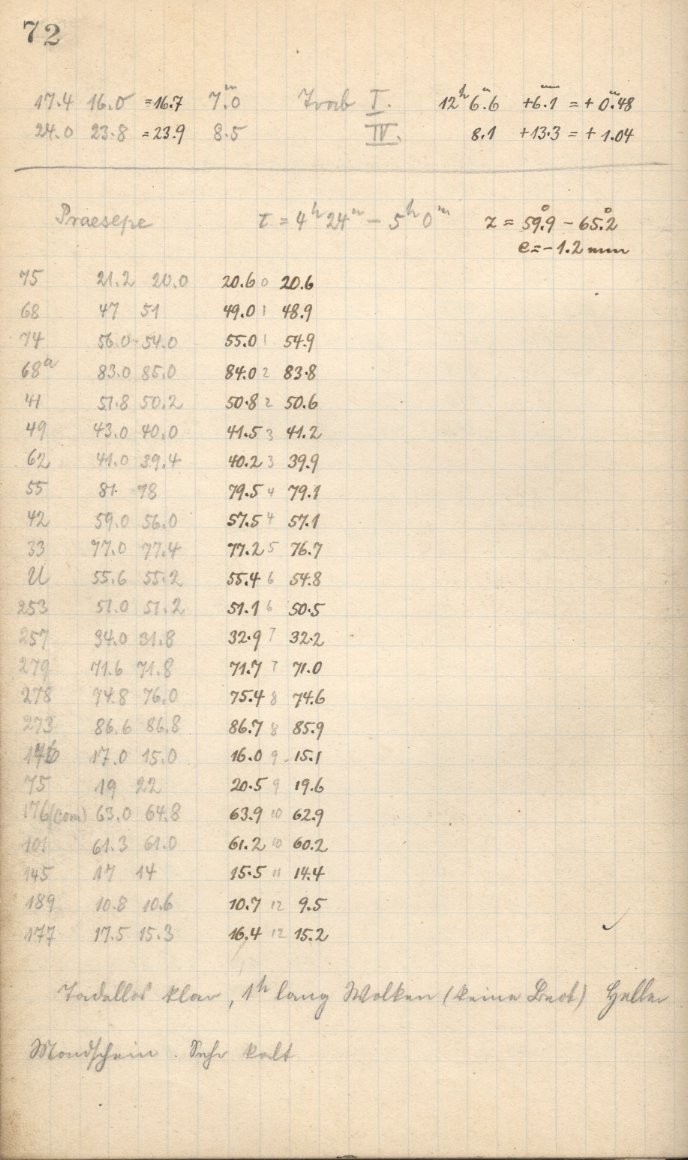 72
17.4 16.0 =16.7 7.ᵐ0 Trab I. 12ʰ6.ᵐ6 +6.1 = + 0.ᵐ48
24.0 23.8 =23.9 8.5 IV. 8.1 +13.3 = + 1.04
Praesepe τ = 4ʰ24ᵐ – 5ʰ0ᵐ z = 59.°9 – 65.°2
e = – 1.2 mm
75 21.2 20.0 20.6 0 20.6
68 47 51 49.0 1 48.9
74 56.0 54.0 55.0 1 54.9
68ᵃ 83.0 85.0 84.0 2 83.8
41 51.8 50.2 50.8 2 50.6
49 43.0 40.0 41.5 3 41.2
62 41.0 39.4 40.2 3 39.9
55 81. 78 79.5 4 79.1
42 59.0 56.0 57.5 4 57.1
33 77.0 77.4 77.2 5 76.7
U 55.6 55.2 55.4 6 54.8
253 51.0 51.2 51.1 6 50.5
257 34.0 31.8 32.9 7 32.2
279 71.6 71.8 71.7 7 71.0
278 74.8 76.0 75.4 8 74.6
273 86.6 86.8 86.7 8 85.9
17.0 15.0 16.0 9 15.1
75 19 22 20.5 9 19.6
176 (com) 63.0 64.8 63.9 10 62.9
101 61.3 61.0 61.2 10 60.2
145 17 14 15.5 11 14.4
189 10.8 10.6 10.7 12 9.5
177 17.5 15.3 16.4 12 15.2
Tadellos klar, 1ʰ lang Wolken (keine Beob) Heller
Mondschein. Sehr kalt